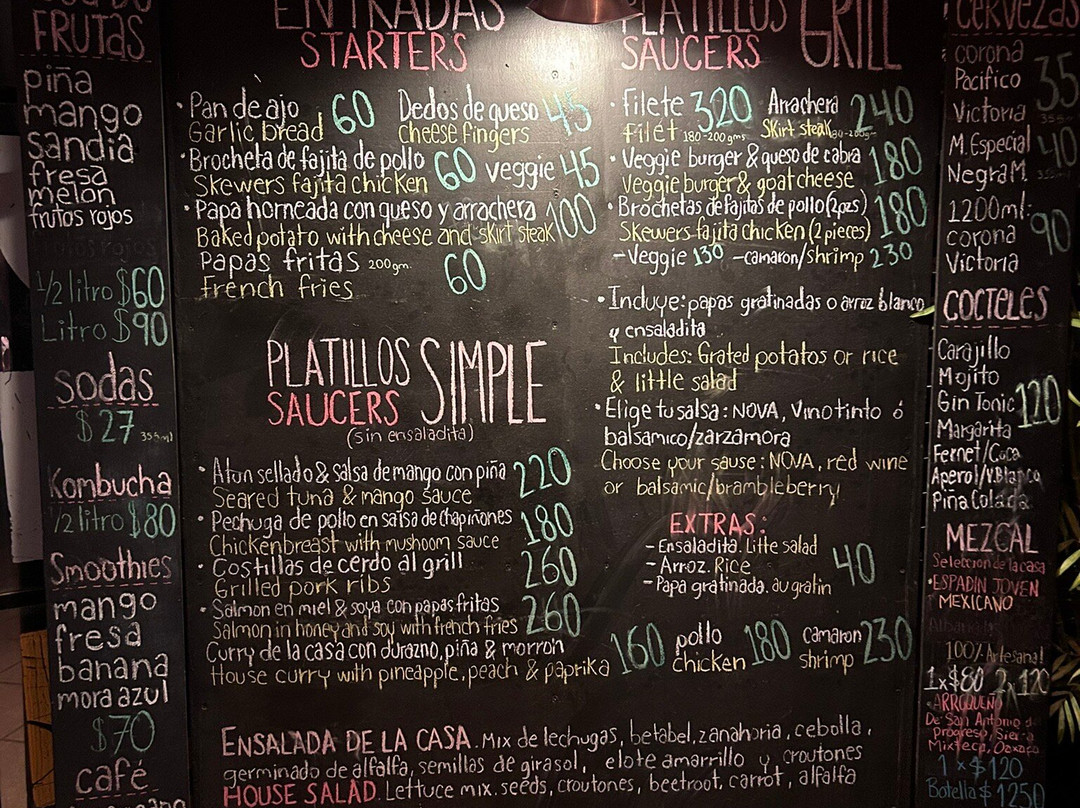 FRUTAS
piña
mango
sandia
fresa
melon
frutos rojos
1/2 litro $60
Litro $90
sodas
$27 355ml
Kombucha
1/2 litro $80
Smoothies
mango
fresa
banana
mora azul
$70
café
ENTRADAS
STARTERS
• Pan de ajo 60 Dedos de queso 45
Garlic bread cheese fingers
• Brocheta de fajita de pollo 60 veggie 45
Skewers fajita chicken
• Papa horneada con queso y arrachera 100
Baked potato with cheese and skirt steak
Papas fritas 200gm. 60
french fries
PLATILLOS SIMPLE
SAUCERS
(sin ensaladita)
• Atun sellado & salsa de mango con piña 220
Seared tuna & mango sauce
• Pechuga de pollo en salsa de chapiñones 180
Chickenbreast with mushoom sauce
• Costillas de cerdo al grill 260
Grilled pork ribs
• Salmon en miel & soya con papas fritas 260
Salmon in honey and soy with french fries
Curry de la casa con durazno, piña & morron
House curry with pineapple, peach & paprika 160 pollo chicken 180 camaron shrimp 230
ENSALADA DE LA CASA. Mix de lechugas, betabel, zanahoria, cebolla,
germinado de alfalfa, semillas de girasol, elote amarrillo y croutones
HOUSE SALAD. Lettuce mix. seeds, croutones, beetroot, carrot, alfalfa
PLATILLOS GRILL
SAUCERS
• filete 320 Arrachera 240
filet 180-200gms Skirt steak
• Veggie burger & queso de cabra 180
Veggie burger & goat cheese
• Brochetas de fajitas de pollo (2pzs) 180
Skewers fajita chicken (2 pieces)
- Veggie 130 - camaron/shrimp 230
• Incluye: papas gratinadas o arroz blanco
y ensaladita
Includes: Grated potatos or rice
& little salad
• Elige tu salsa: NOVA, Vino tinto ó
balsamico/zarzamora
Choose your sause: NOVA, red wine
or balsamic/brambleberry
EXTRAS:
- Ensaladita. Litte salad
- Arroz. Rice 40
- Papa gratinada. au gratin
Cervezas
corona 35
Pacifico
Victoria
M. Especial 40
Negra M.
1200ml:
corona 90
Victoria
COCTELES
Carajillo
Mojito
Gin Tonic 120
Margarita
Fernet/Coca
Aperol/V.Blanco
Piña Colada
MEZCAL
Seleccion de la casa
• ESPADIN JOVEN
MEXICANO
100% Artesanal
1x$80 2x120
• ARROQUEÑO
De San Antonio
Progreso, Sierra
Mixteca, Oaxaca
1 x $120
Botella $ 1250